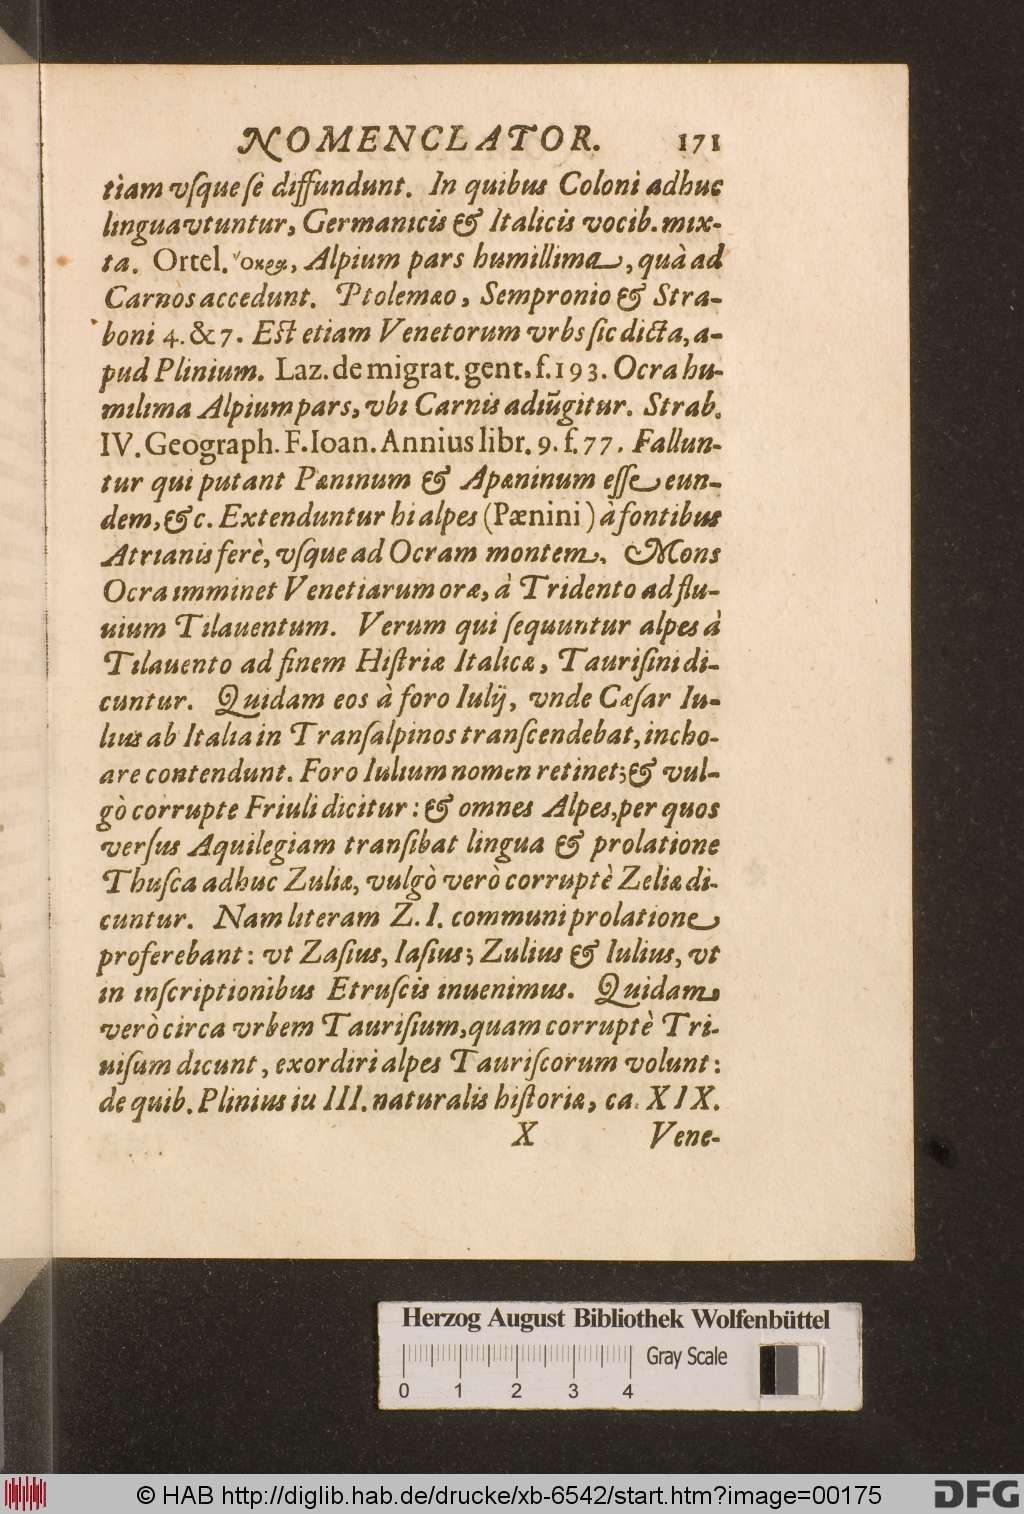 NOMENCLATOR. 171
tiam vſque ſe diffundunt. In quibus Coloni adhuc
lingua vtuntur, Germanicis & Italicis vocib. mix-
ta. Ortel. Ὄκρα, Alpium pars humillima, quà ad
Carnos accedunt. Ptolemæo, Sempronio & Stra-
boni 4. & 7. Eſt etiam Venetorum vrbs ſic dicta, a-
pud Plinium. Laz. de migrat. gent. f. 193. Ocra hu-
milima Alpium pars, vbi Carnis adiūgitur. Strab.
IV. Geograph. F. Ioan. Annius libr. 9. f. 77. Fallun-
tur qui putant Pæninum & Apæninum eſſe eun-
dem, &c. Extenduntur hi alpes (Pænini) à fontibus
Atrianis ferè, vſque ad Ocram montem. Mons
Ocra imminet Venetiarum oræ, à Tridento ad flu-
uium Tilauentum. Verum qui ſequuntur alpes à
Tilauento ad finem Hiſtriæ Italicæ, Tauriſini di-
cuntur. Quidam eos à foro Iulij, vnde Cæſar Iu-
lius ab Italia in Tranſalpinos tranſcendebat, incho-
are contendunt. Foro Iulium nomen retinet; & vul-
gò corrupte Friuli dicitur: & omnes Alpes, per quos
verſus Aquilegiam tranſibat lingua & prolatione
Thuſca adhuc Zuliæ, vulgò verò corruptè Zeliæ di-
cuntur. Nam literam Z. I. communi prolatione
proferebant: vt Zaſius, Iaſius; Zulius & Iulius, vt
in inſcriptionibus Etruſcis inuenimus. Quidam
verò circa vrbem Tauriſium, quam corruptè Tri-
uiſum dicunt, exordiri alpes Tauriſcorum volunt:
de quib. Plinius iu III. naturalis hiſtoriæ, ca. XIX.
X Vene-
Herzog August Bibliothek Wolfenbüttel
Gray Scale
0 1 2 3 4
© HAB http://diglib.hab.de/drucke/xb-6542/start.htm?image=00175
DFG